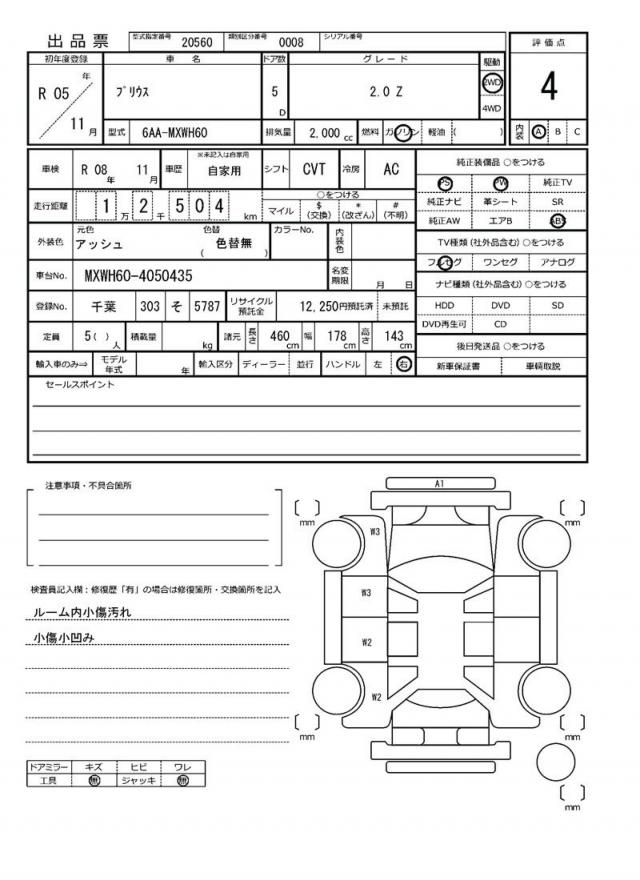 出品票 型式指定番号 20560 類別区分番号 0008 シリアル番号
初年度登録 車名 ドア数 グレード 駆動 評価点
R 05 年 プリウス 5 D 2.0 Z 2WD 4
11 月 4WD
型式 6AA-MXWH60 排気量 2,000 cc 燃料 ガソリン 軽油 ( ) 内装 A B C
車検 R 08 年 11 月 車歴 ※未記入は自家用 自家用 シフト CVT 冷房 AC
走行距離 1 万 2 千 5 0 4 km ○をつける
マイル $ (交換) * (改ざん) # (不明)
外装色 元色 アッシュ 色替 ( 色替無 ) カラーNo. 内装色
車台No. MXWH60-4050435 名変期限 月 日
登録No. 千葉 303 そ 5787 リサイクル預託金 12,250円預託済 未預託
定員 5 ( ) 人 積載量 kg 諸元 長さ 460 cm 幅 178 cm 高さ 143 cm
輸入車のみ⇒ モデル年式 年 輸入区分 ディーラー 並行 ハンドル 左 右
純正装備品 ○をつける
PS PW 純正TV
純正ナビ 革シート SR
純正AW エアB ABS
TV種類 (社外品含む) ○をつける
フルセグ ワンセグ アナログ
ナビ種類 (社外品含む) ○をつける
HDD DVD SD
DVD再生可 CD
後日発送品 ○をつける
新車保証書 車輌取説
セールスポイント
注意事項・不具合箇所
検査員記入欄：修復歴「有」の場合は修復箇所・交換箇所を記入
ルーム内小傷汚れ
小傷小凹み
ドアミラー キズ ヒビ ワレ
工具 無 ジャッキ 無
A1
mm mm
W3
W3
W2
W2
mm mm
mm